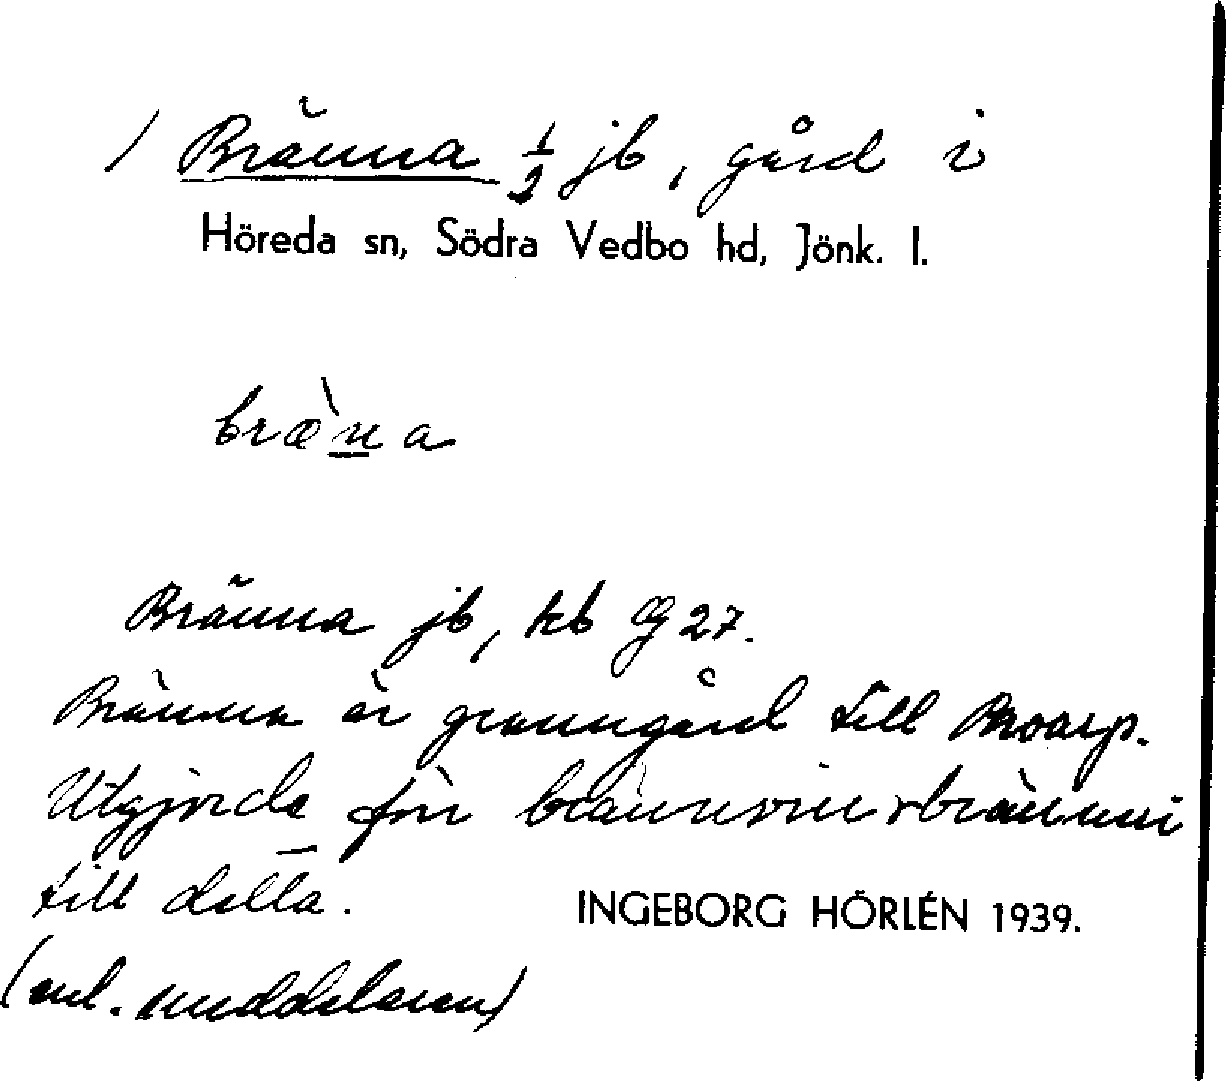 / Bränna ½ jb, gård i
Höreda sn, Södra Vedbo hd, Jönk. l.
bræ̀na
Bränna jb, kb G 27.
Bränna är granngård till Broarp.
Utgjorde för brännvinsbränneri
till detta.
INGEBORG HÖRLÉN 1939.
(enl. meddelaren)